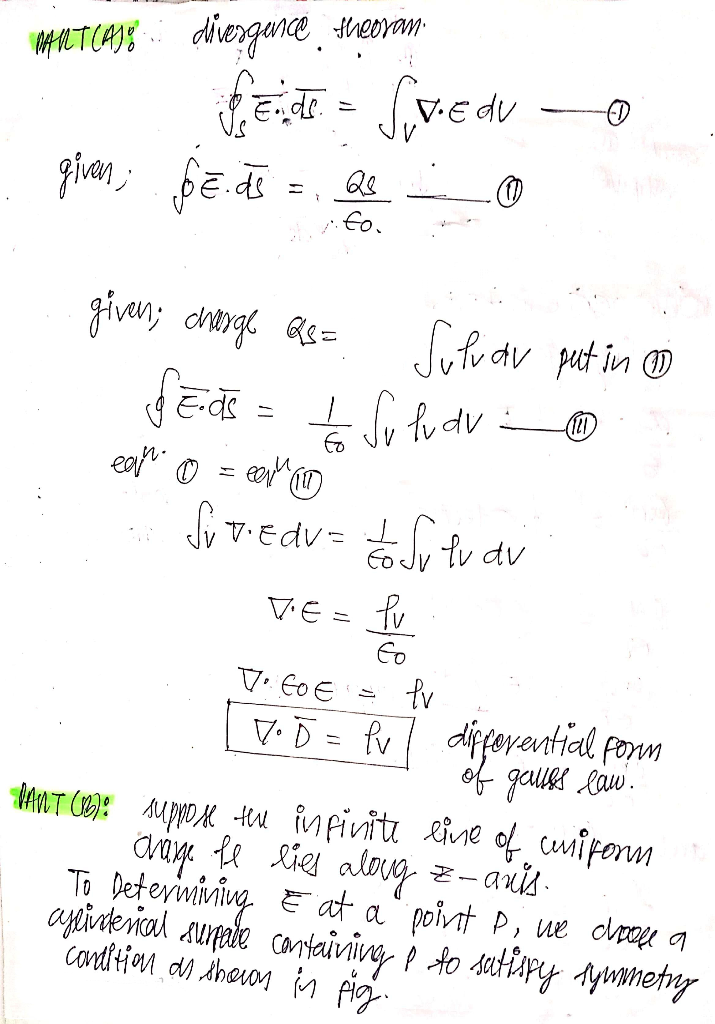 PART(A): divergence theoram.
∮_S E̅.d̅s̅ = ∫_V ∇.E dv —— (I)
given; ∮E̅.d̅s̅ = Qs/ϵ0. —— (II)
given; charge Qs = ∫_v ρv dv put in (II)
∮E̅.d̅s̅ = 1/ϵ0 ∫_v ρv dv —— (III)
eqⁿ. (I) = eqⁿ (III)
∫_v ∇.E dv = 1/ϵ0 ∫_v ρv dv
∇.E = ρv/ϵ0
∇. ϵ0 E = ρv
∇. D̅ = ρv differential form
of gauss law.
PART(B): suppose the infinite line of uniform
charge ρℓ lies along z-axis.
To Determining E̅ at a point P, we choose a
cylinderical surface containing P to satisfy symmetry
condition as shown in fig.